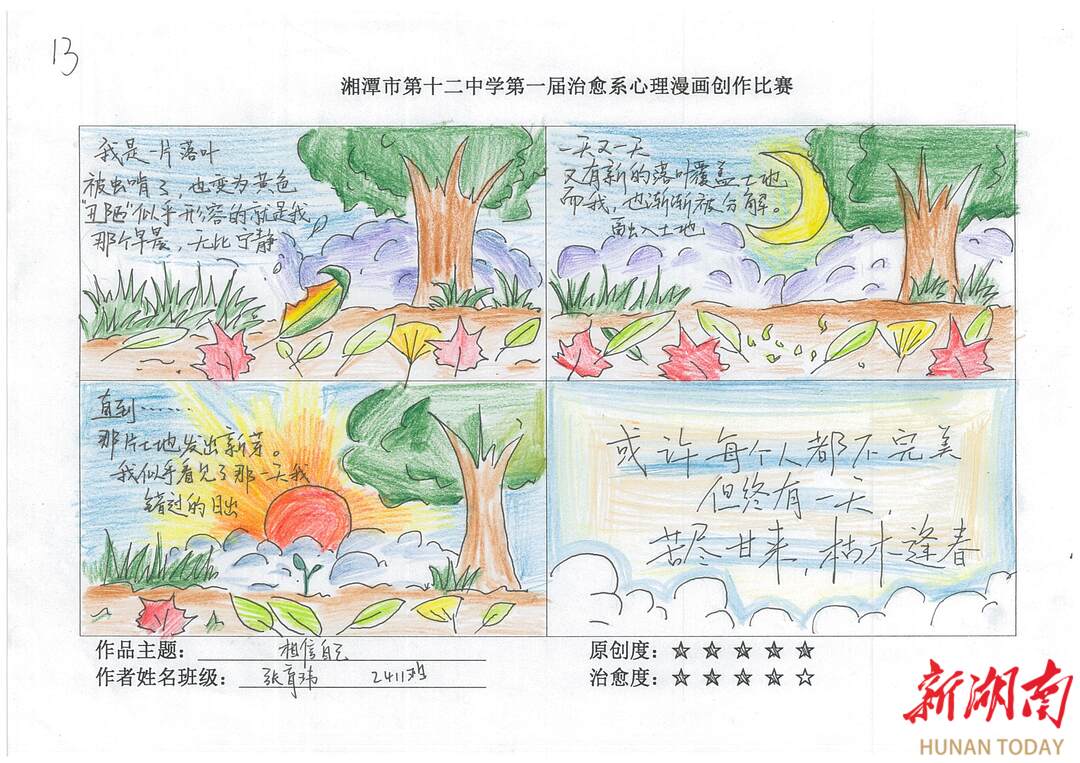 13
湘潭市第十二中学第一届治愈系心理漫画创作比赛
我是一片落叶
被虫啃了，也变为黄色
"丑陋"似乎形容的就是我
那个早晨，无比宁静
一天又一天
又有新的落叶覆盖土地
而我，也渐渐被分解。
融入土地
直到……
那片土地发出新芽。
我似乎看见了那一天我
错过的日出
或许每个人都不完美
但终有一天，
苦尽甘来，枯木逢春
作品主题：相信自己
作者姓名班级：张育玮 2411班
原创度：★★★★★
治愈度：★★★★☆
新湖南
HUNAN TODAY